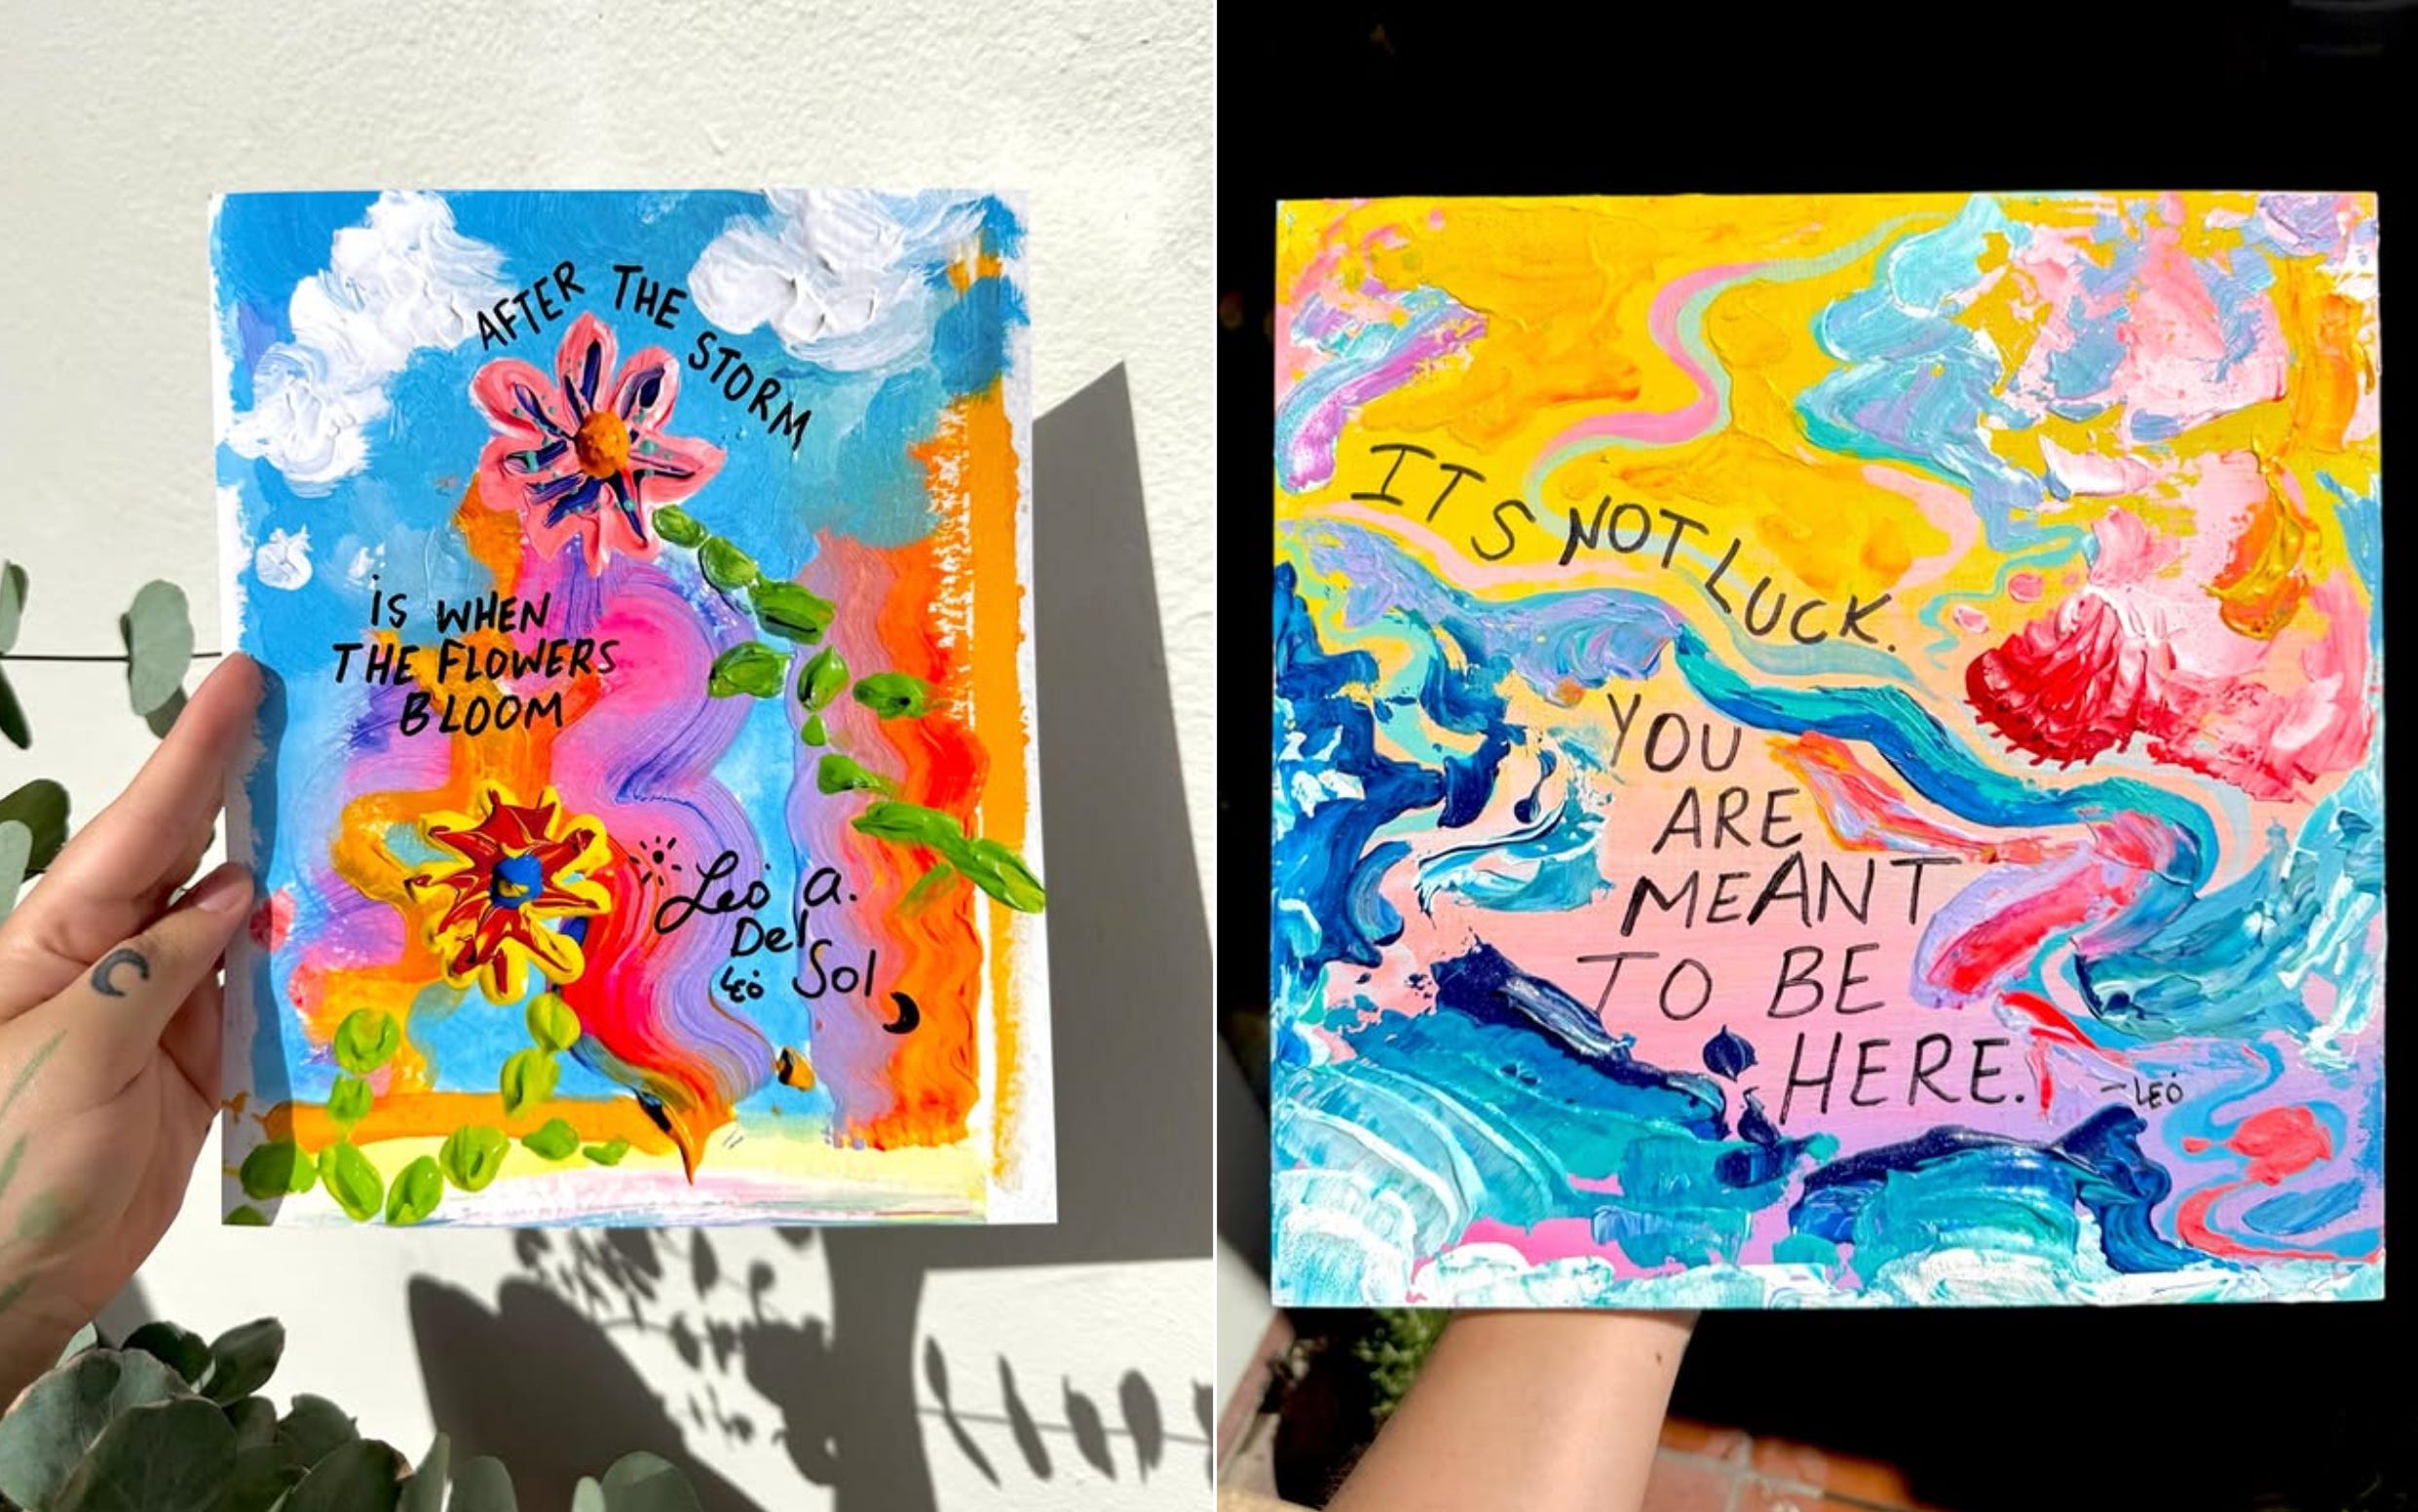 AFTER THE STORM
iS WHEN
THE FLOWERS
BLOOM
Leo a.
Del
LEO Sol
ITS NOT LUCK.
YOU
ARE
MEANT
TO BE
HERE.
-LEO